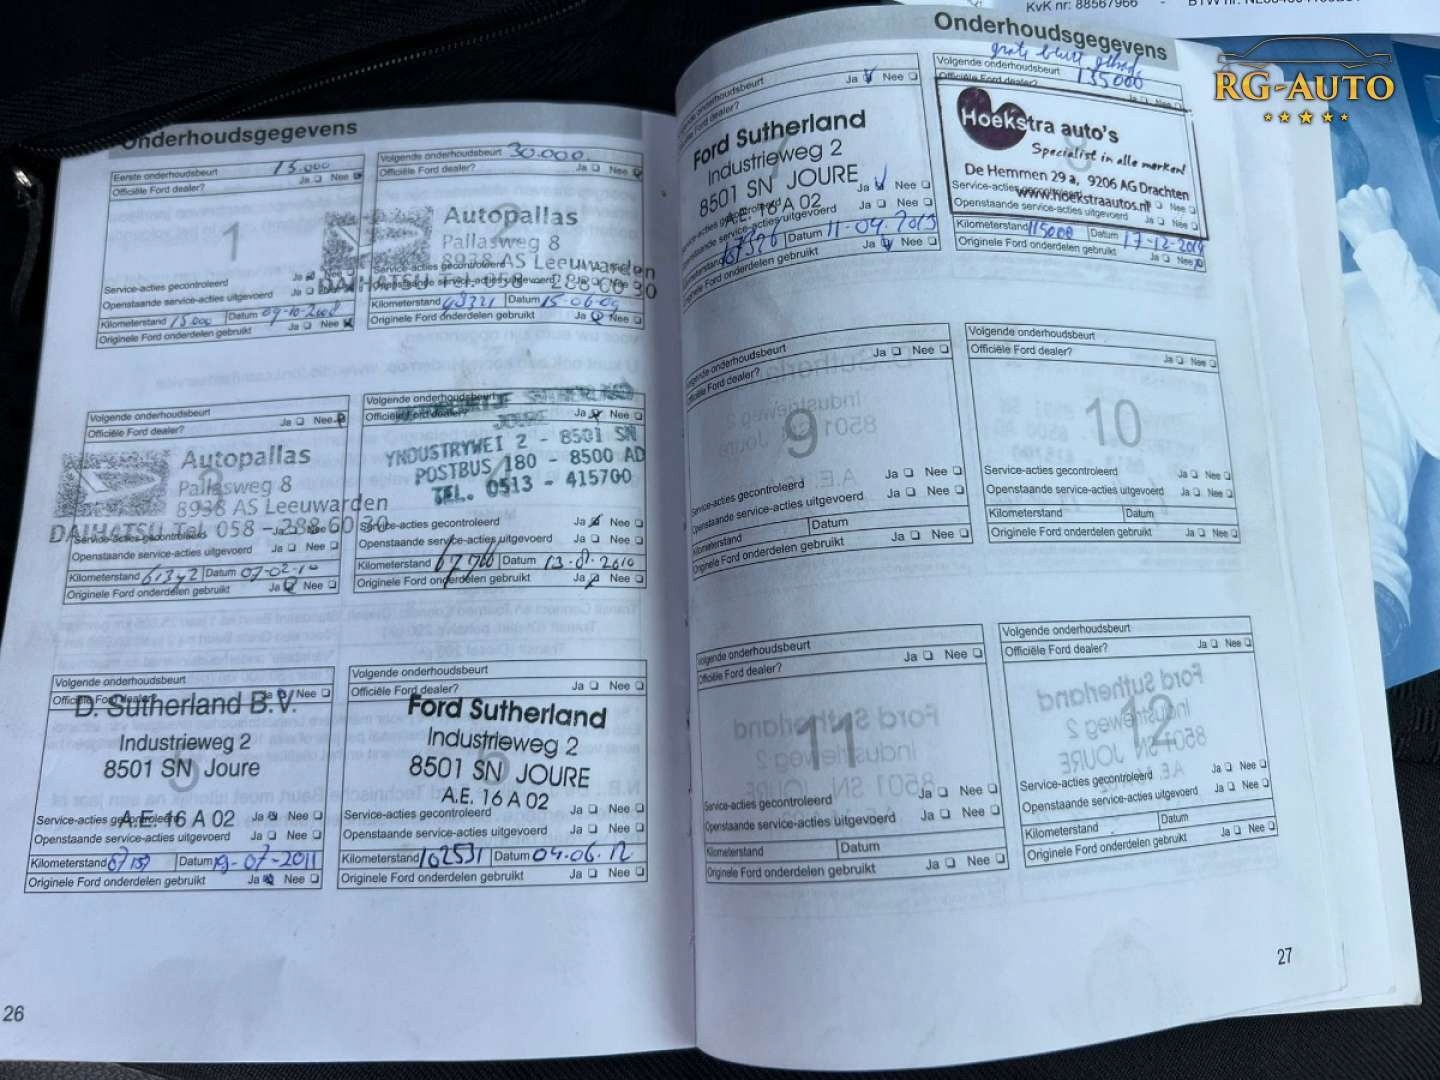 KvK nr: 88567966
RG-AUTO
Onderhoudsgegevens
Eerste onderhoudsbeurt 15.000
Officiële Ford dealer? Ja Nee
1
Service-acties gecontroleerd Ja
Openstaande service-acties uitgevoerd Ja
Kilometerstand 15000 Datum 09-10-2008
Originele Ford onderdelen gebruikt Ja Nee
Volgende onderhoudsbeurt 30.000
Officiële Ford dealer? Ja Nee
2
Autopallas
Pallasweg 8
8938 AS Leeuwarden
DAIHATSU Tel. 058 - 288 60 30
Service-acties gecontroleerd
Openstaande service-acties uitgevoerd
Kilometerstand Datum 15-06-09
Originele Ford onderdelen gebruikt Ja Nee
Volgende onderhoudsbeurt
Officiële Ford dealer? Ja Nee
Autopallas
Pallasweg 8
8938 AS Leeuwarden
DAIHATSU Tel. 058 - 288 60 30
Service-acties gecontroleerd
Openstaande service-acties uitgevoerd Ja Nee
Kilometerstand 61342 Datum 07-02-10
Originele Ford onderdelen gebruikt Ja Nee
Volgende onderhoudsbeurt
Officiële Ford dealer? Ja Nee
JOURE
YNDUSTRYWEI 2 - 8501 SN
POSTBUS 180 - 8500 AD
TEL. 0513 - 415700
Service-acties gecontroleerd Ja Nee
Openstaande service-acties uitgevoerd Ja Nee
Kilometerstand 67766 Datum 13-01-2010
Originele Ford onderdelen gebruikt Ja Nee
Volgende onderhoudsbeurt
Officiële Ford dealer? Ja Nee
D. Sutherland B.V.
5
Industrieweg 2
8501 SN Joure
A.E. 16 A 02
Service-acties gecontroleerd Ja Nee
Openstaande service-acties uitgevoerd Ja Nee
Kilometerstand Datum 19-07-2011
Originele Ford onderdelen gebruikt Ja Nee
Volgende onderhoudsbeurt
Officiële Ford dealer? Ja Nee
Ford Sutherland
6
Industrieweg 2
8501 SN JOURE
A.E. 16 A 02
Service-acties gecontroleerd Ja Nee
Openstaande service-acties uitgevoerd Ja Nee
Kilometerstand 102531 Datum 04.06.12
Originele Ford onderdelen gebruikt Ja Nee
26
Onderhoudsgegevens
Volgende onderhoudsbeurt
Officiële Ford dealer? Ja Nee
Ford Sutherland
Industrieweg 2
8501 SN JOURE
A.E. 16 A 02
Service-acties gecontroleerd Ja Nee
Openstaande service-acties uitgevoerd
Kilometerstand 107526 Datum 11-04-2013
Originele Ford onderdelen gebruikt Ja Nee
grote beurt gehad
Volgende onderhoudsbeurt 135000
Officiële Ford dealer? Ja Nee
8
Hoekstra auto's
Specialist in alle merken!
De Hemmen 29 a, 9206 AG Drachten
www.hoekstraautos.nl
Service-acties gecontroleerd Nee
Openstaande service-acties uitgevoerd Ja Nee
Kilometerstand 115000 Datum 17-12-2014
Originele Ford onderdelen gebruikt Ja Nee
Volgende onderhoudsbeurt
Officiële Ford dealer? Ja Nee
9
Service-acties gecontroleerd Ja Nee
Openstaande service-acties uitgevoerd Ja Nee
Kilometerstand Datum
Originele Ford onderdelen gebruikt Ja Nee
Volgende onderhoudsbeurt
Officiële Ford dealer? Ja Nee
10
Service-acties gecontroleerd Ja Nee
Openstaande service-acties uitgevoerd Ja Nee
Kilometerstand Datum
Originele Ford onderdelen gebruikt Ja Nee
Volgende onderhoudsbeurt
Officiële Ford dealer? Ja Nee
11
Service-acties gecontroleerd Ja Nee
Openstaande service-acties uitgevoerd Ja Nee
Kilometerstand Datum
Originele Ford onderdelen gebruikt Ja Nee
Volgende onderhoudsbeurt
Officiële Ford dealer? Ja Nee
12
Service-acties gecontroleerd Ja Nee
Openstaande service-acties uitgevoerd Ja Nee
Kilometerstand Datum
Originele Ford onderdelen gebruikt Ja Nee
27